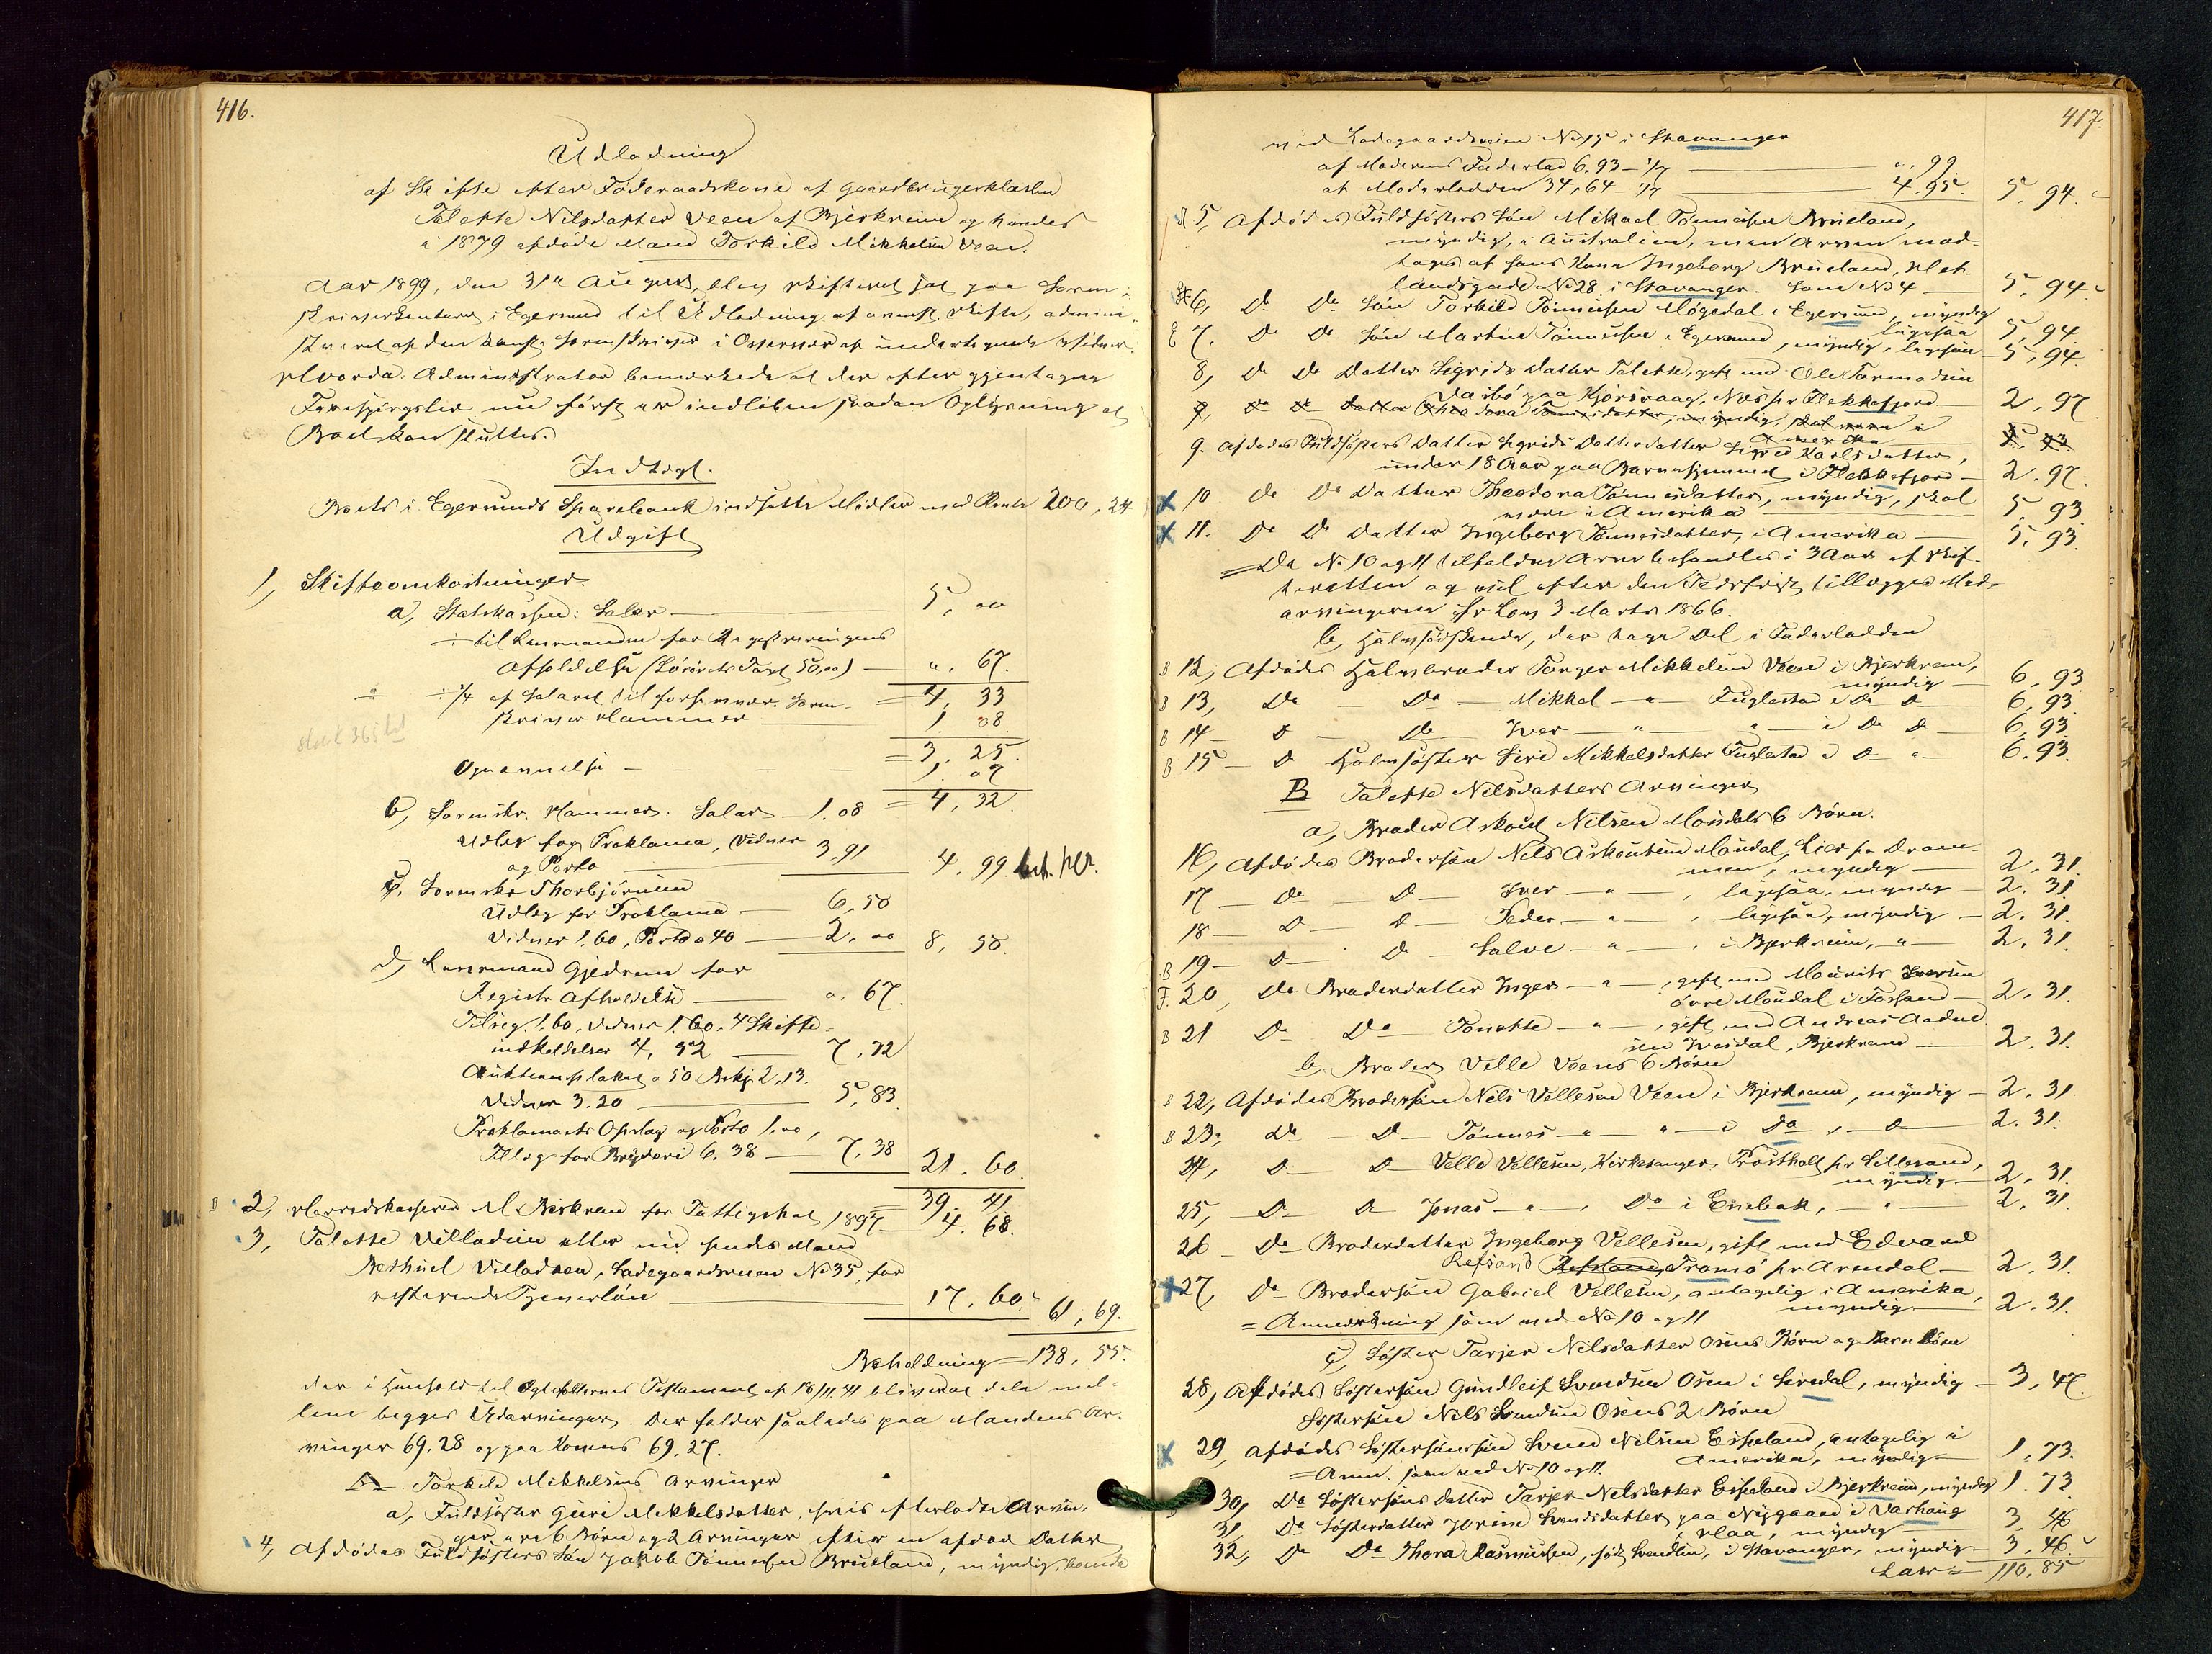 416.
Udlodning
af Skifte efter Föderaadskone af Gaardbrugerklassen
Talette Nilsdatter Veen af Bjerkreim og hendes
i 1879 afdöde Mand Torkild Mikkelsen Veen.
Aar 1899, den 31te August, blev Skifteret sat paa Soren-
skriverkontoret i Egersund til Udlodning af ovennt. Skifte, admini-
streret af den konst. Sorenskriver i Overvær af undertegnede Vidner
Administrator bemærkede at der efter gjentagne
Forespörgsler nu först er indlöben saadan Oplysning at
Boet kan sluttes.
Indtægt.
Boets i Egersunds Sparebank indsatte Midler med Renter 200,24
Udgift
1, Skifteomkostninger.
a, Statskassen: Salær 5,00
÷ til Lensmanden for Registreringens
Afholdelse 0,67.
÷ 1/4 af Salæret til Soren- = 4,33
skriver Hammer 1.08
= 3,25.
1.07
b, Sorenskr. Hammer: Salær 1.08 = 4,32.
Udlæg for Proklama, Vidner
og Porto 3,91 4,99
c, Sorenskr. Thorbjörnsen
Udlæg for Proklama 6,50
Vidner 1.60, Porto 0,40 2,00 8,50.
d, Lensmand Gjedrem for
Registr. Afholdelse 0.67.
Tilsig. 1.60, Vidner 1.60, 4 Skifte-
indkaldelser 4,52 7,72
Auktionsplakat 0.50 Bekj. 2,13.
Vidner 3.20 5,83
Proklamaets Opslag og Porto 1.00,
7,38 21.60
= 39,41
2, Herredskasserer M. Birkrem for Fattigskat 1897 4.68.
3, Talette Villadsen eller ved hendes Mand
Bethuel Villadsen, Ladegaardsveien No 35, for
resterende Tjenerlön 17.60 61,69.
Beholdning = 138,55.
der i Henhold til Ægtefællernes Testament af 18/11 41 bliver at dele mel-
lem begges Udarvinger. Der falder saaledes paa Mandens Ar-
vinger 69,28 og paa Konens 69,27.
A Torkild Mikkelsens Arvinger
a, Fuldsöster Guri Mikkelsdatter, hvis efterladte Arvin-
ger ere 6 Börn og 2 Arvinger efter en afdöd Datter
4, Afdödes Fuldsösters Sön Jakob Tönnesen Brueland, myndig, boende
417.
ved Ladegaardsveien No 15 i Stavanger
af Moderens Faderlod 6.93 – 1/7 0.99
at Moderlodden 34,64 1/7 4.95. 5,94.
5, Afdödes Fuldsösters Sön Mikael Tönnesen Brueland,
myndig, i Australien, men Arven mod-
tages af hans Kone Ingeborg Brueland,
landsgade No 28 i Stavanger. Som No 4 5,94.
6, Do Do Sön Torkild Tönnesen Mögedal i Egersund, myndig
ligesaa 5,94.
7. Do Do Sön Martin Tönnesen i Egersund, myndig, ligesaa 5,94.
8, Do Do Datter Sigrids Datter Talette, gift med Ole Tarmodsen
paa Kjörsvaag, Næs pr Flekkefjord 2,97
9, Do Do Datter Theodora Tönnesdatter, myndig, skal være i
Amerika 5.93.
9. Afdödes Fuldsösters Datter Sigrids Datterdatter Sigrid Karlsdatter,
under 18 Aar paa Barnehjemmet i Flekkefjord 2.97.
10 Do Do Datter Theodora Tönnesdatter, myndig, skal
være i Amerika 5,93
11. Do Do Datter Ingeborg Tönnesdatter, i Amerika 5,93.
= De No 10 og 11 tilfaldne Arver behandles i 3 Aar af Skif-
teretten og vil efter den Tidsfrist tillægges Med-
arvingerne ifr Lov 3 Marts 1866.
b, Halvsödskende, der tage Del i Faderlodden
12, Afdödes Halvbroder Torger Mikkelsen Veen i Bjerkrem,
myndig 6.93
13, Do Do Mikkel – " – Fuglestad i Do Do 6,93.
14 – D – Do Iver – " – " – i Do D 6,93
15 – D Halvsöster Siri Mikkelsdatter Fuglestad i D – " – 6.93.
B Talette Nilsdatters Arvinger
a, Broder Askoud Nilsen Moudals 6 Börn.
16, Afdödes Brodersön Nils Askoudsen Moudal, Lier pr Dram-
men, myndig 2,31.
17 – Do – D – Iver – " – , ligesaa, myndig 2.31
18 – D – D – Peder – " – , ligesaa, myndig 2.31.
19 – D – D – Salve – " – , i Bjerkreim, – " – 2.31.
20, Do Broderdatter Inger – " – , gift med Mourits Iversen
Övre Moudal i Forsand 2.31.
21 Do Do Tonette – " – , gift med Andreas Aadne-
sen Ivesdal, Bjerkrem 2.31.
b, Broder Velle Veens 6 Börn
22, Afdödes Brodersön Nils Vellesen Veen i Bjerkrem, myndig – 2.31
23, Do – D – Tönnes – " – " – i Do , – D 2.31.
24, D – D – Velle Vellesen, Kirkesanger, Trosthall pr Lillesand,
myndig 2,31
25, – D – D Jonas – " – , Do i Enebak, – " – 2,31.
26 – Do Broderdatter Ingeborg Vellesen, gift med Edvard
Refsand Tromö pr Arendal 2.31.
27, Do Brodersön Gabriel Vellesen, antagelig i Amerika,
myndig 2.31.
= Anmærkning som ved No 10 og 11
c, Söster Tarjer Nilsdatter Osens Börn og Barnebörn
28, Afdödes Söstersön Gundleif Svendsen Osen i Siredal, myndig – 3,47.
Söstersön Nils Svendsen Osens 2 Börn
29, Afdödes Söstersönssön Svend Nilsen Espeland, antagelig i
Amerika, myndig 1.73.
= Anm. som ved No 10 og 11.
30, Do Söstersöns Datter Tarjer Nilsdatter Espeland i Bjerkreim, myndig 1.73
31, Do Sösterdatter Jorine Svendsdatter paa Nygaard i Varhaug
, myndig 3,46
32, Do Do Thora Rasmussen, föd Svendsen, i Stavanger, myndig 3.46.
Lar = 110,85